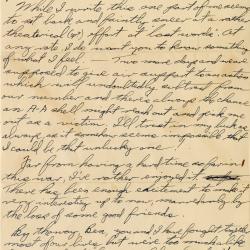 While I write this one part of me seems
to sit back and faintly sneer at a rather
theatrical (sp?) effort at "last words". At
any rate I do want you to know something
of what I feel. — Two more days and we are
supposed to give air support to an action
which may undoubtedly subtract from
our number and there's always the chance
an A-A shell might reach out and pick me
out as a victim. I'll trust in my luck as
always as it somehow seems impossible that
I could be that unlucky one.
Far from having a hard time so far in
this war, I've rather enjoyed it.
There has been enough excitement to make it
very interesting up to now, marred only by
the loss of some good friends.
By the way, Bea, you and I have fought together
most of our lives but were too much